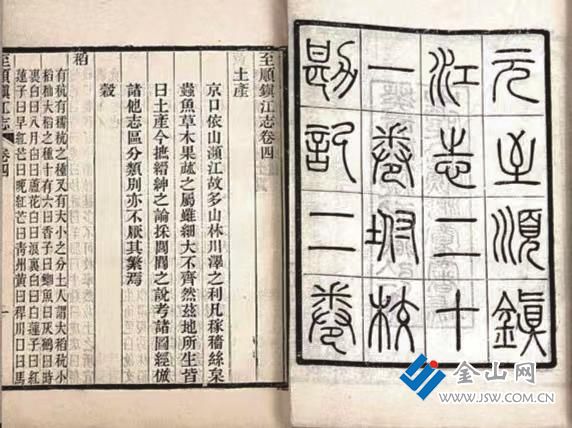 元至順鎮
江志二十
一卷坿校
勘記二卷
至順鎮江志卷四
土產
京口依山瀕江故多山林川澤之利凡稼穡絲枲
蠶魚草木果蓏之屬雖細大不齊然茲地所生皆
曰土產今摭縉紳之論採閭閻之說考諸圖經倣
諸他志區分類別亦不厭其繁焉
穀
稻
有秔有糯秔之種又有大小之分土人謂大稻秔小
稻秈大稻之種十有六曰香子曰鯽魚曰灰鶴曰時
裏白曰八月白曰蘆花白曰浪裏白曰白蓮子曰紅
蓮子曰早紅芒曰晚紅芒曰靑州黃曰稈川曰馬
至順鎮江志 卷四 一
金山网
WWW.JSW.COM.CN